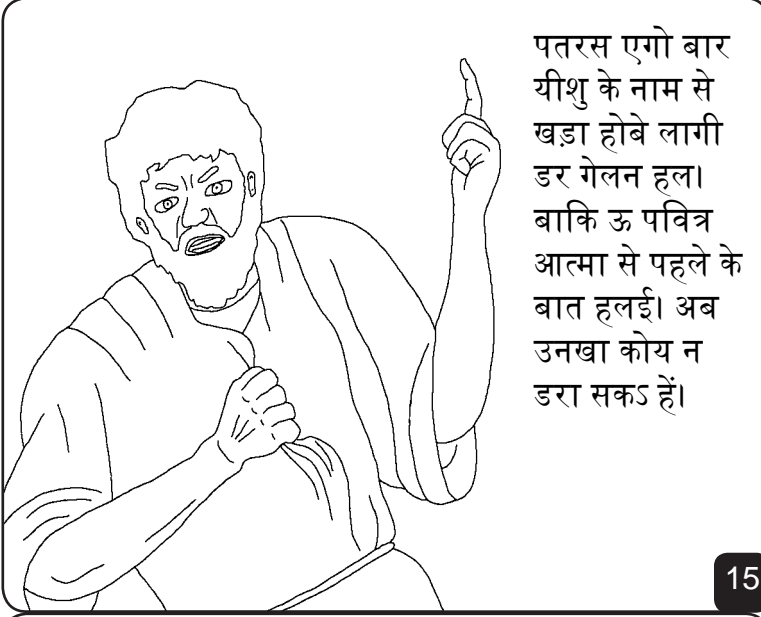 पतरस एगो बार
यीशु के नाम से
खड़ा होबे लागी
डर गेलन हल।
बाकि ऊ पवित्र
आत्मा से पहले के
बात हलई। अब
उनखा कोय न
डरा सकऽ हें।
15